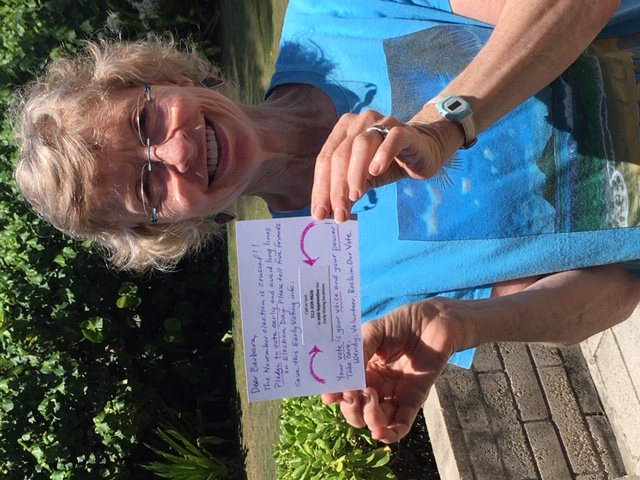 Dear Barbara,
The November election is crucial!!
Pledge to vote early and avoid long lines
on Election Day. Please tell five friends.
Save this Early Voting info:
Call or text
512-359-9826
in mid-September for
Early Voting locations.
Your vote is your voice and your power!
Take care,
Wendy, Volunteer, Reclaim Our Vote